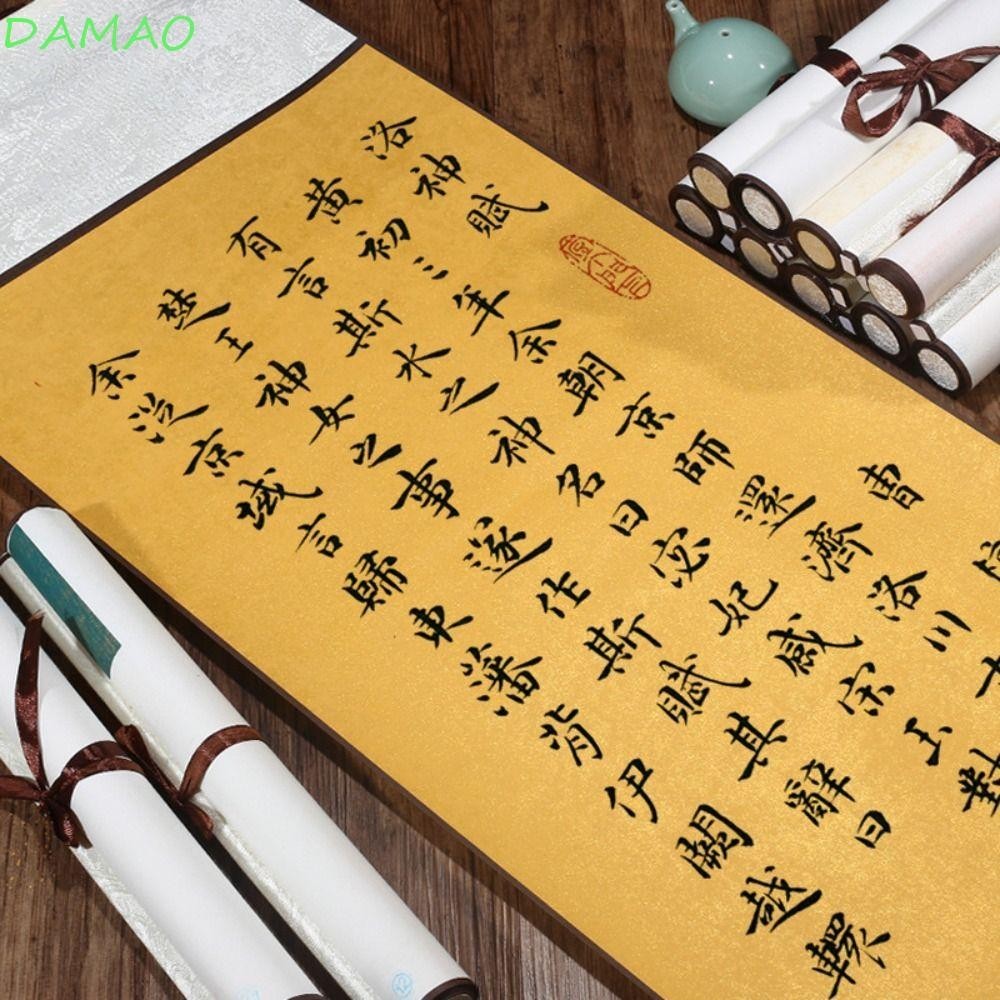 DAMAO
洛神賦 曹
黄初三年余朝京師還濟洛川
有言斯水之神名曰宓妃感宋玉對
楚王神女之事遂作斯賦其辭曰
余從京域言歸東藩背伊闕越轘
12